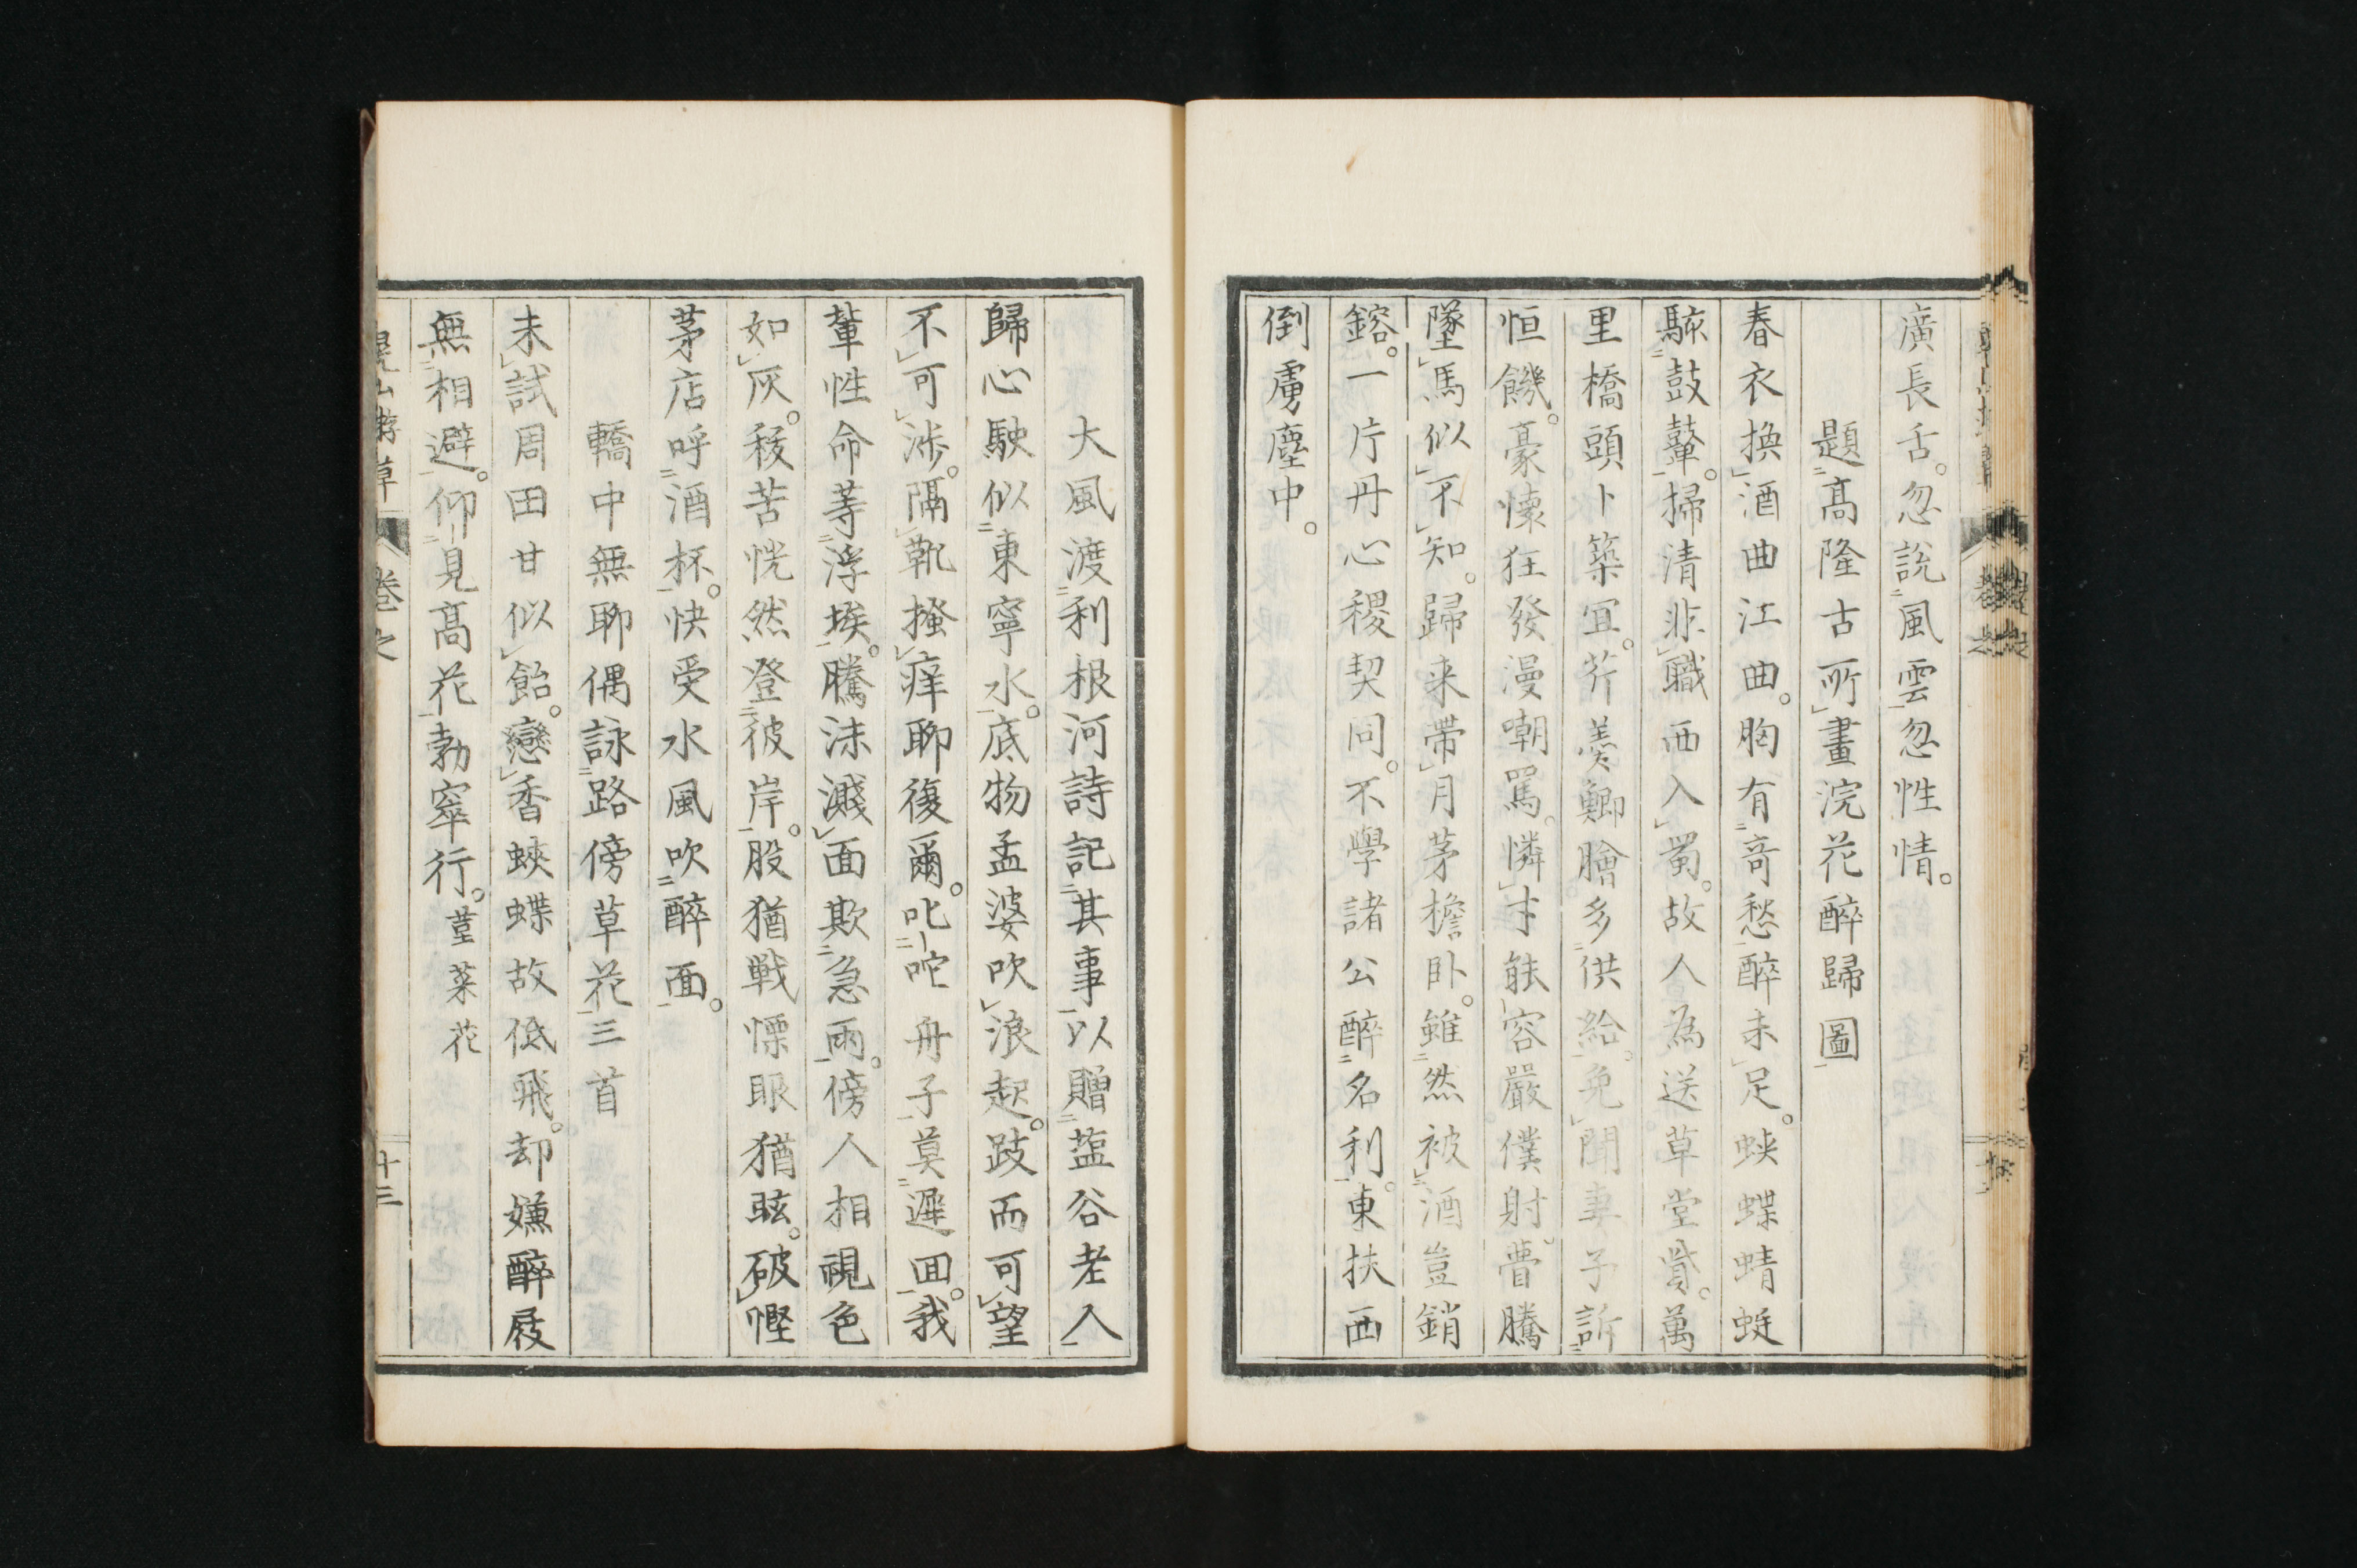 廣長舌。忽說風雲忽性情。
題高隆古所畫浣花醉歸圖
春衣換酒曲江曲。胸有奇愁醉未足。蛺蝶蜻蜓
駭鼓鼙。掃清非職西入蜀。故人為送草堂貲。萬
里橋頭卜築宜。芥羹鯽膾多供給。免聞妻子訴
恒饑。豪懷狂發漫嘲罵。憐才能容嚴僕射。瞢騰
墜馬似不知。歸来帶月茅檐臥。雖然被酒豈銷
鎔。一片丹心稷契同。不學諸公醉名利。東扶西
倒虜塵中。
大風渡利根河詩記其事以贈蓝谷老人
歸心駛似東寧水。底物孟婆吹浪起。跂而可望
不可渉。隔靴搔痒聊復爾。叱咤舟子莫遲囬。我
輩性命等浮埃。騰沫濺面欺急雨。傍人相視色
如灰。稜苦恍然登彼岸。股猶戦慄眼猶眩。破慳
茅店呼酒杯。快受水風吹醉面。
轎中無聊偶詠路傍草花三首
未試周田甘似飴。戀香蛺蝶故低飛。却嫌醉屐
無相避。仰見高花勃窣行。菫菜花
晃山游草 卷之 十三